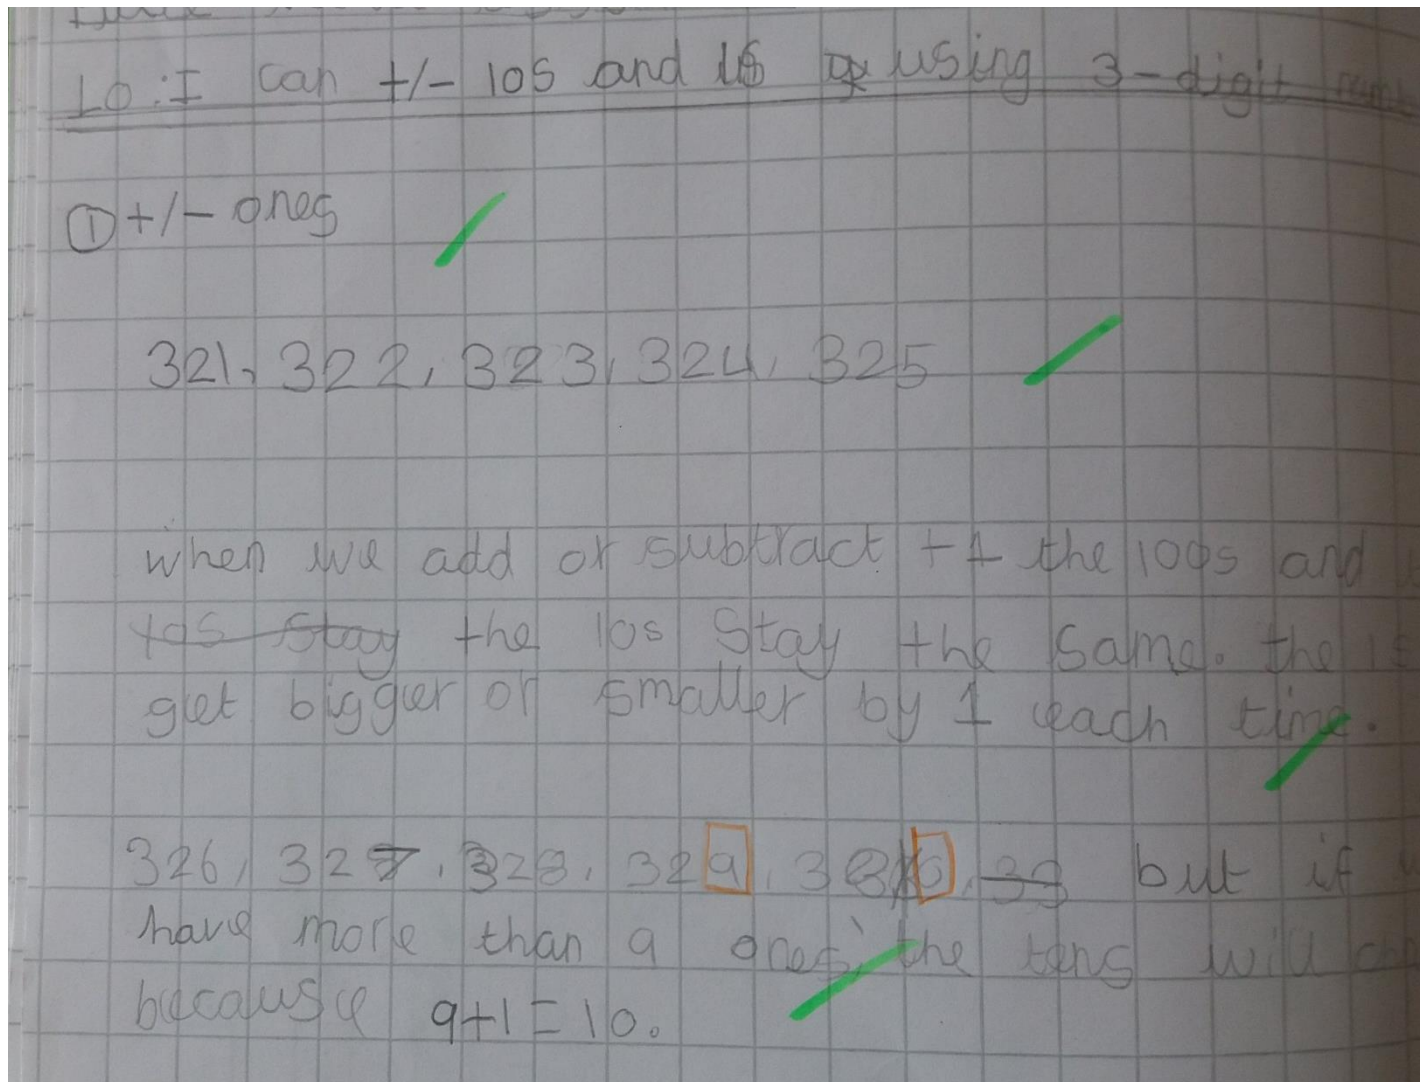 LO: I can +/- 10s and 1s using 3-digit
① +/- ones
321, 322, 323, 324, 325
when we add or subtract +1 the 100s and
10s stay the 10s stay the same. the 1s
get bigger or smaller by 1 each time.
326, 327, 328, 329, 330, 33 but if
have more than 9 ones, the tens will
because 9+1=10.